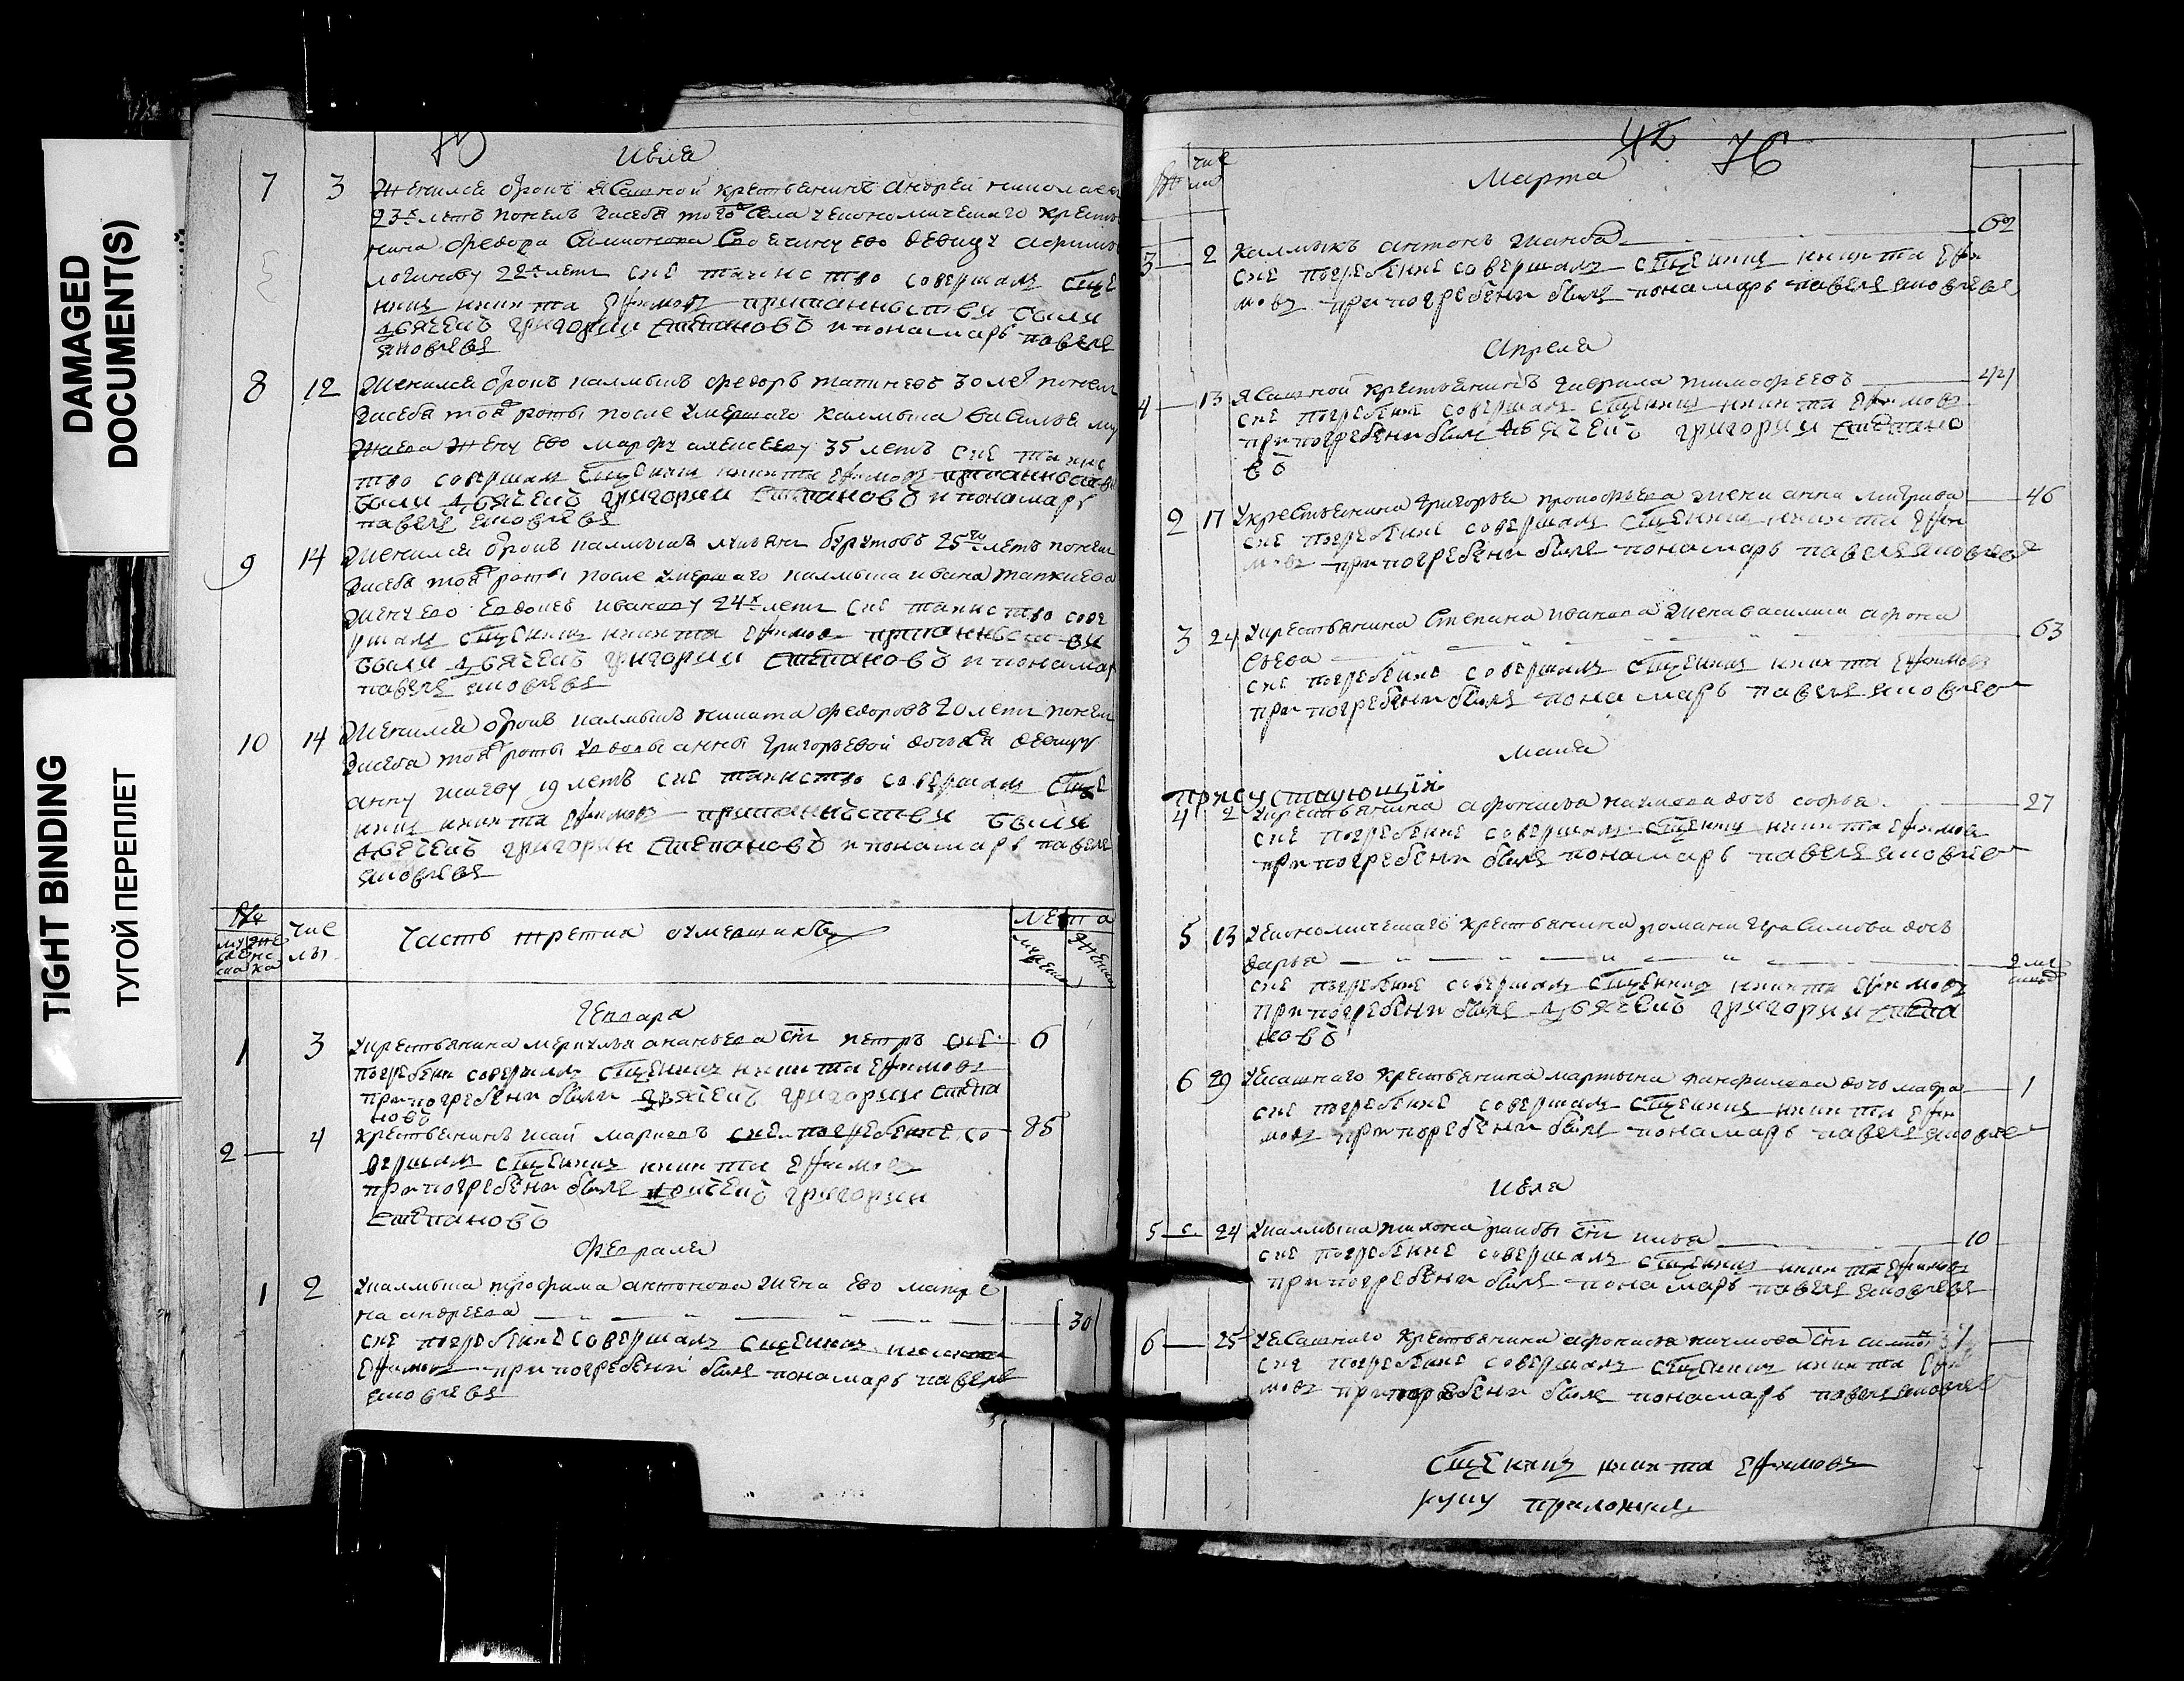 DAMAGED
DOCUMENT(S)
TIGHT BINDING
ТУГОЙ ПЕРЕПЛЕТ
Июля
7 3 Женился отрокъ ясашной крестьянинъ Андрей
23 х летъ понелъ засебя того села
Федора Симионова ево девицу
22 х летъ сие таинство совершалъ сще
нникъ никита Ефимовъ
дьячекъ григории степановъ и понамарь павелъ
яковлевъ
8 12 Женился отрокъ калмыкъ Федоръ 30 ле понелъ
засебя тоя роты после умершаго калмыка
жену ево марфу алексееву 35 летъ сие таинс
тво совершалъ сщенникъ никита Ефимовъ
были дьячекъ григории степановъ и понамарь
павелъ яковлевъ
9 14 Женился отрокъ калмыкъ 25 летъ понелъ
засебя тоя роты после умершаго калмыка ивана
жену ево иванову 24 х летъ сие таинство сове
ршалъ сщенникъ никита Ефимовъ
были дьячекъ григории степановъ и понамар
павелъ яковлевъ
10 14 Женился отрокъ калмыкъ никита федоровъ 20 летъ понелъ
засебя тоя роты вдовы анны григорьевой дочь девицу
анну 19 летъ сие таинство совершалъ сще
нникъ никита Ефимовъ были
дьячекъ григории степановъ и понамарь павелъ
яковлевъ
№ чис лы Часть третия оумерших лета
Генваря
1 3 укрестьянина меркулья ананьева снъ петръ сие 6
погребени совершалъ сщенникъ никита Ефимовъ
при погребени были дьячекъ григории степа
новъ
2 4 крестьянинъ исай марковъ сие погребение со 85
вершалъ сщенникъ никита Ефимовъ
при погребени былъ дьячекъ григории
степановъ
Февраля
1 2 укалмыка трофима антонова жена ево матре
на андреева 30
сие погребение совершалъ сщенникъ никита
Ефимовъ при погребени былъ понамарь павелъ
яковлевъ
42 76
№ чис ла
Марта
3 2 Калмыкъ антонъ
сие погребение совершалъ сщенникъ никита Ефи
мовъ при погребени былъ понамарь павелъ яковлевъ
Апреля
4 13 Ясашной крестьянинъ гаврила тимофеевъ
сие погребение совершалъ сщенникъ никита Ефимовъ
при погребени былъ дьячекъ григории степано
въ
2 17 Укрестьянина григорья прокофьева жена анна 46
сие погребение совершалъ сщенникъ никита Ефи
мовъ при погребени былъ понамарь павелъ яковлев
3 24 укрестьянина степана иванова жена василиса афона
сьева 63
сие погребение совершалъ сщенникъ никита Ефимовъ
при погребени былъ понамарь павелъ яковлев
Маия
присутствующiй
4 2 укрестьянина афонасья наумова дочь софья 27
сие погребение совершалъ сщенникъ никита Ефимов
при погребени былъ понамарь павелъ яковлев
5 13 уекономическаго крестьянина романа герасимова дочь
дарья 2 ме
сие погребение совершалъ сщенникъ никита Ефимовъ
при погребени былъ дьячекъ григории степа
новъ
6 29 уесашнаго крестьянина мартына панфилова дочь мавра 1
сие погребение совершалъ сщенникъ никита Ефи
мовъ при погребени былъ понамарь павелъ яковле
Июля
5 24 укалмыка тихона снъ илья 10
сие погребение совершалъ сщенникъ никита Ефимовъ
при погребени былъ понамарь павелъ яковлевъ
6 25 уесашнаго крестьянина афонасья наумова снъ
сие погребение совершалъ сщенникъ никита Ефи
мовъ при погребени былъ понамарь павелъ яковлев
Сщенникъ никита Ефимовъ
руку приложилъ